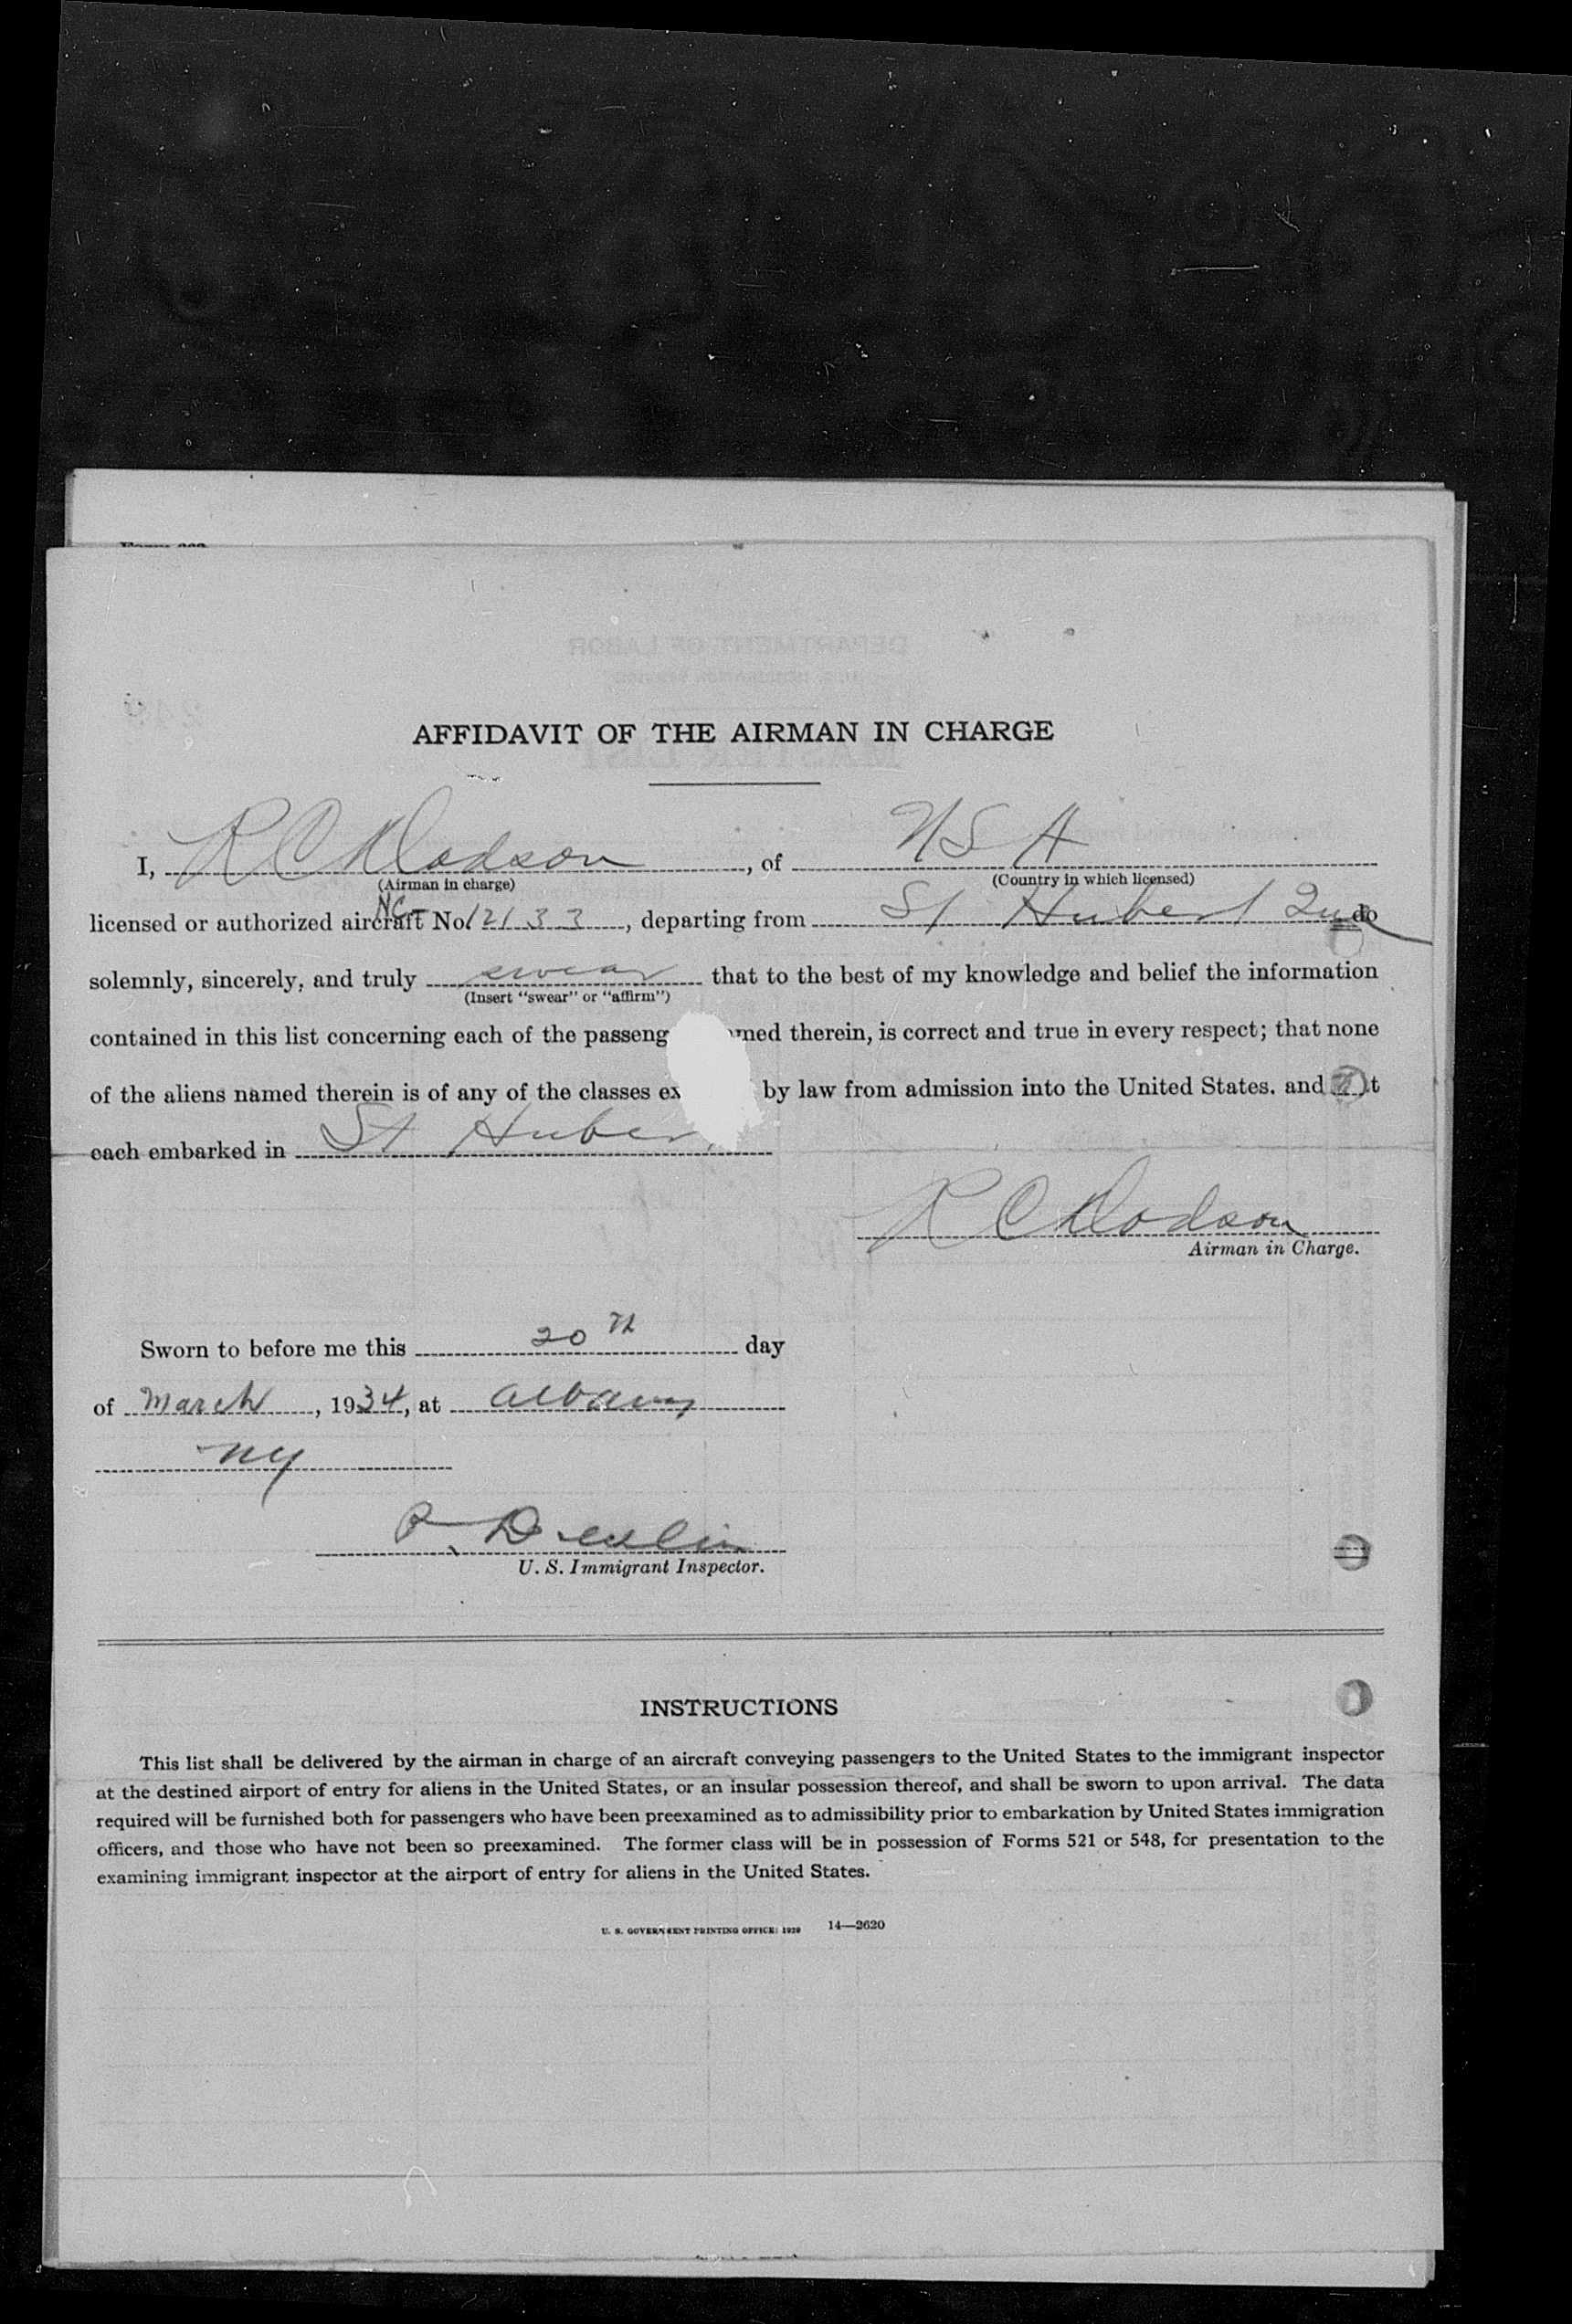 AFFIDAVIT OF THE AIRMAN IN CHARGE
I, R C Dodson, of U S A
(Airman in charge) (Country in which licensed)
licensed or authorized aircraft No. NC- 12133, departing from St Hubert Que do
solemnly, sincerely, and truly swear that to the best of my knowledge and belief the information
(Insert "swear" or "affirm")
contained in this list concerning each of the passeng med therein, is correct and true in every respect; that none
of the aliens named therein is of any of the classes ex by law from admission into the United States, and t
each embarked in St Huber
R C Dodson
Airman in Charge.
Sworn to before me this 20th day
of March, 1934, at Albany
NY
U. S. Immigrant Inspector.
INSTRUCTIONS
This list shall be delivered by the airman in charge of an aircraft conveying passengers to the United States to the immigrant inspector
at the destined airport of entry for aliens in the United States, or an insular possession thereof, and shall be sworn to upon arrival. The data
required will be furnished both for passengers who have been preexamined as to admissibility prior to embarkation by United States immigration
officers, and those who have not been so preexamined. The former class will be in possession of Forms 521 or 548, for presentation to the
examining immigrant inspector at the airport of entry for aliens in the United States.
U. S. GOVERNMENT PRINTING OFFICE: 1929 14—2620